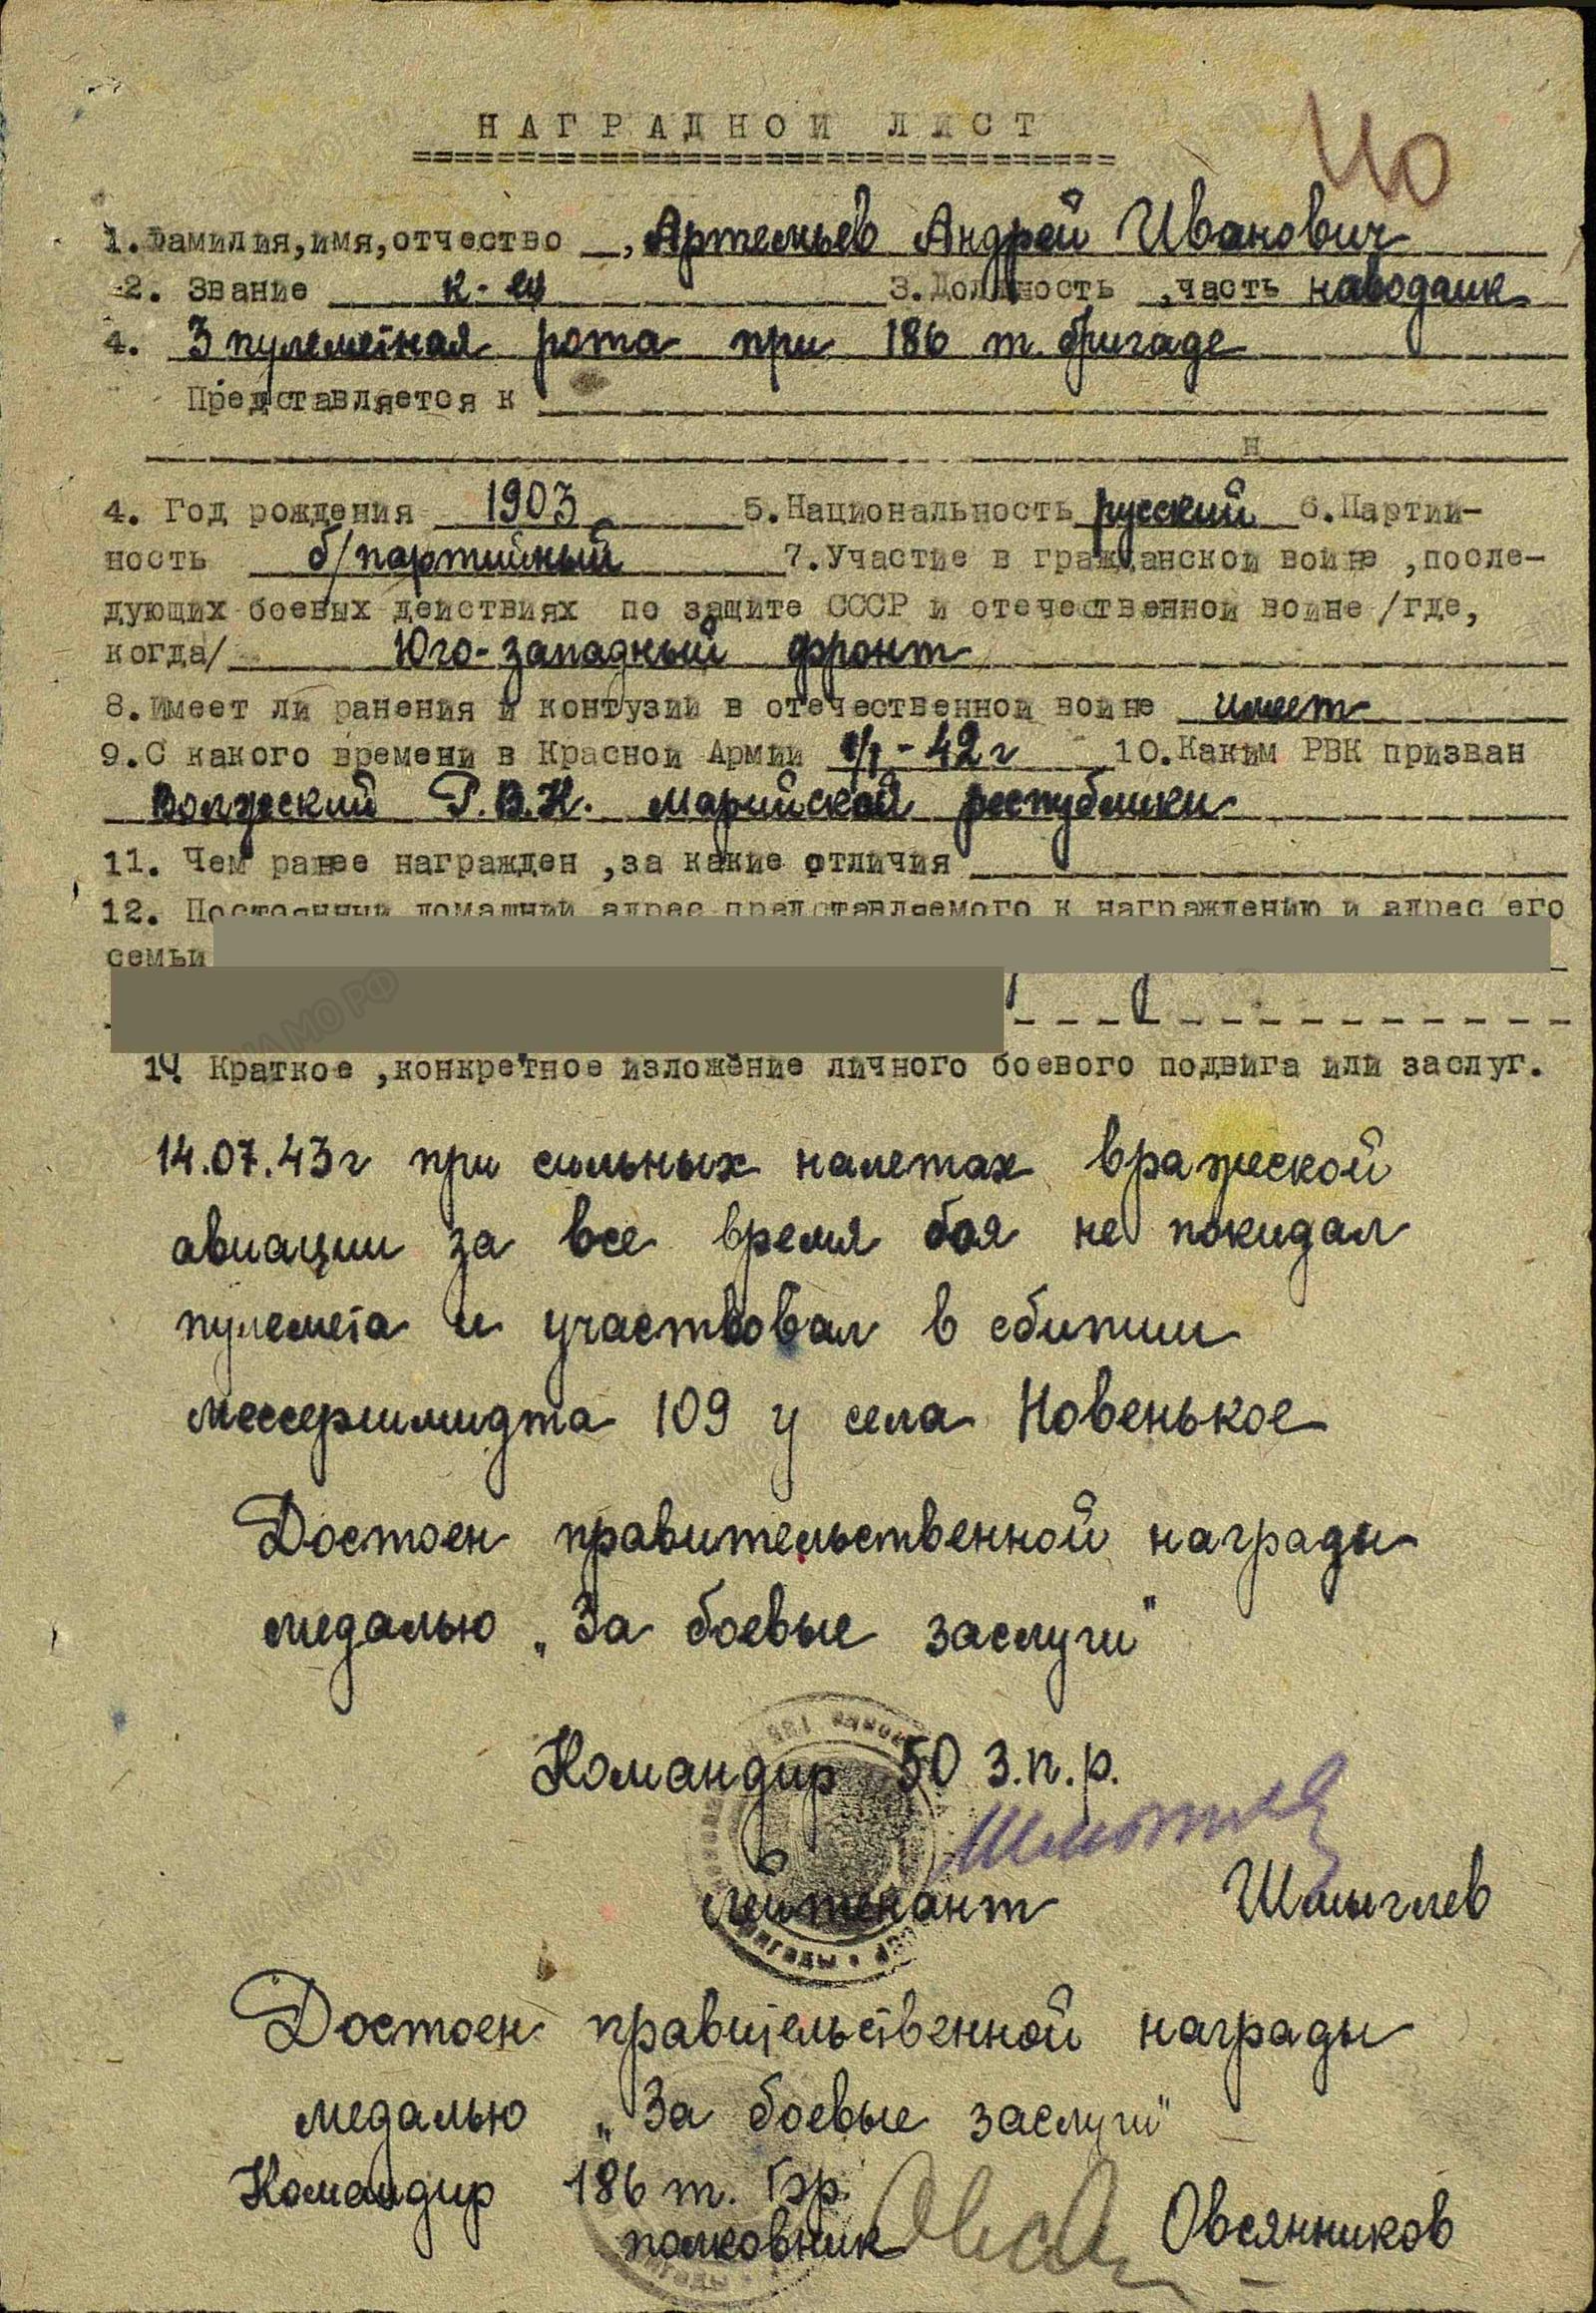 НАГРАДНОЙ ЛИСТ
40
1. Фамилия, имя, отчество , Артемьев Андрей Иванович
2. Звание к-ец 3. Должность , часть наводчик
4. 3 пулеметная рота при 186 т. бригаде
Представляется к
н
4. Год рождения 1903 5. Национальность русский 6. Партий-
ность б/партийный 7. Участие в гражданской войне , после-
дующих боевых действиях по защите СССР и отечественной войне /где,
когда/ Юго-западный фронт
8. Имеет ли ранения и контузии в отечественной войне имеет
9. С какого времени в Красной Армии - 42 г 10. Каким РВК призван
Волжский Р.В.К. Марийской республики
11. Чем ранее награжден , за какие отличия
12. Постоянный домашний адрес представляемого к награждению и адрес его
семьи
14. Краткое , конкретное изложение личного боевого подвига или заслуг.
14.07.43г при сильных налетах вражеской
авиации за все время боя не покидал
пулемета и участвовал в сбитии
мессершмидта 109 у села Новенькое
Достоен правительственной награды
медалью „За боевые заслуги"
Командир 50 З.п.р.
лейтенант Шмыглев
Достоен правительственной награды
медалью „За боевые заслуги"
Командир 186 т. бр.
полковник Овсянников